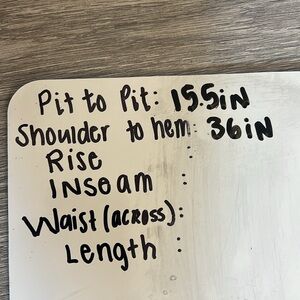 Pit to Pit: 15.5iN
Shoulder to hem: 36iN
Rise :
INseam :
Waist (across):
Length :